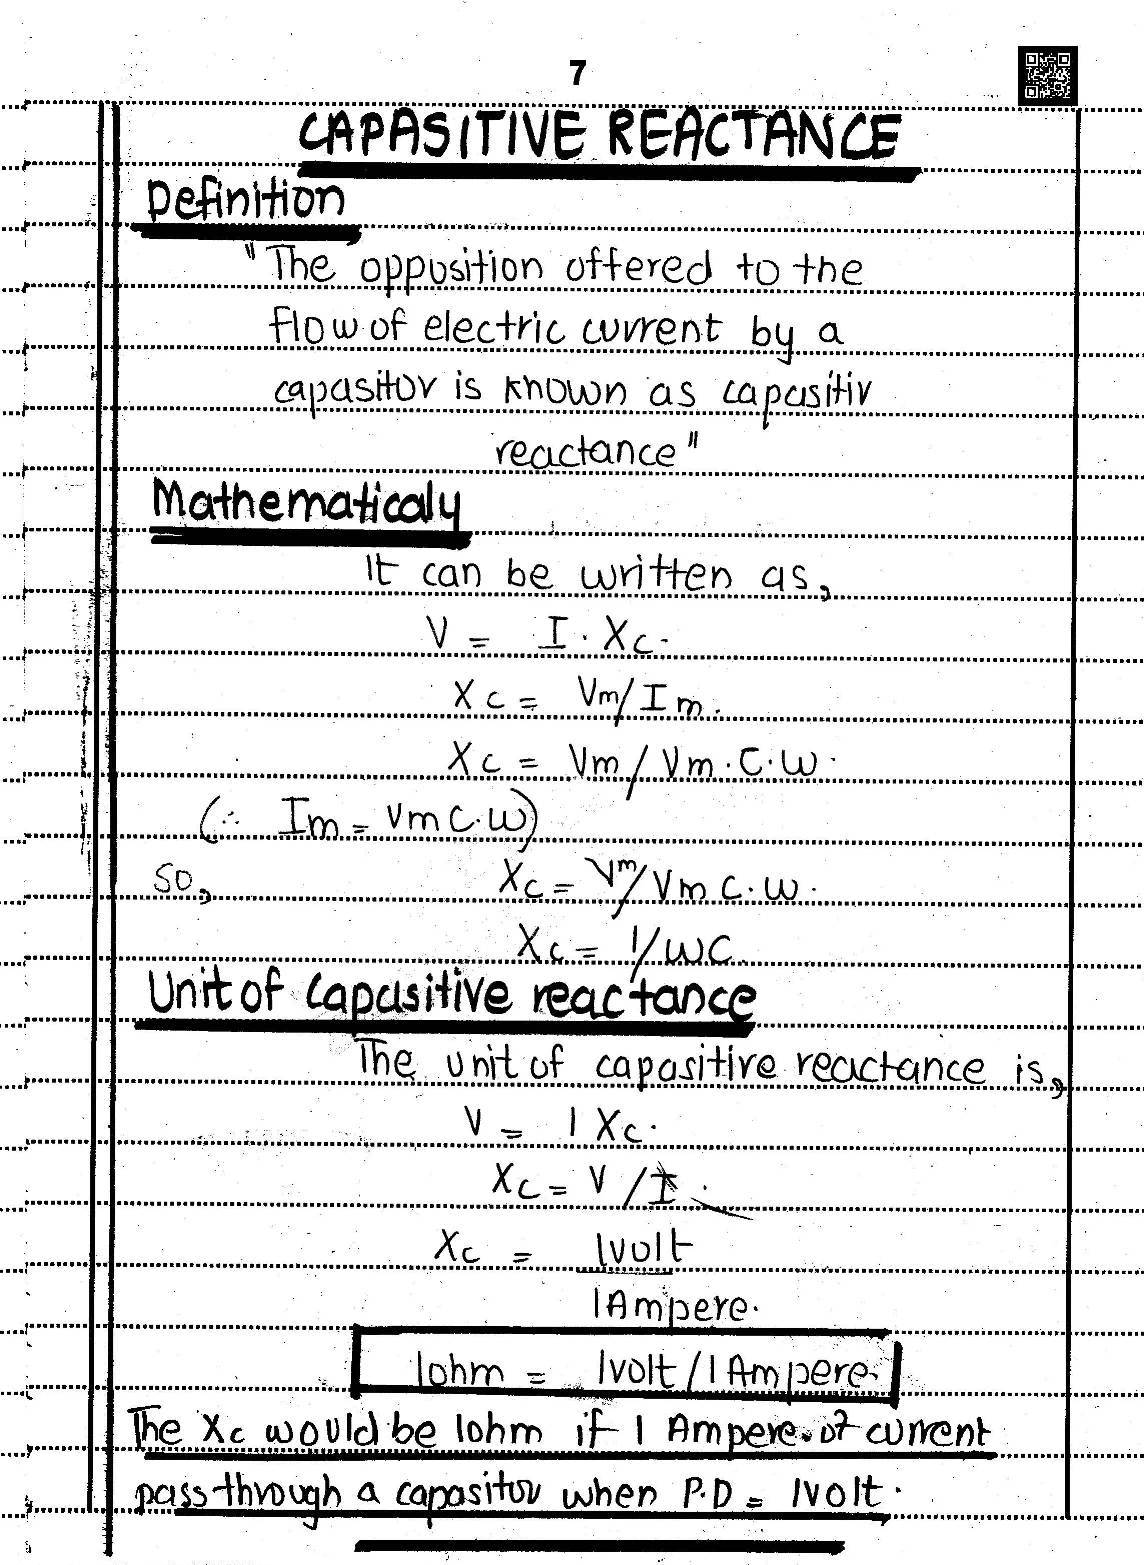 7
CAPASITIVE REACTANCE
Definition
"The opposition offered to the
flow of electric current by a
capasitor is known as capasitiv
reactance"
Mathematicaly
It can be written as,
V = I . Xc.
Xc = Vm/Im.
Xc = Vm/Vm.C.W.
(∴ Im = VmC.W)
so, Xc = Vm/Vm C.W.
Xc = 1/WC.
Unit of capasitive reactance
The unit of capasitive reactance is,
V = I Xc.
Xc = V/I.
Xc = 1volt
1Ampere.
1ohm = 1volt/1Ampere.
The Xc would be 1ohm if 1 Ampere of current
pass through a capasitor when P.D = 1volt.